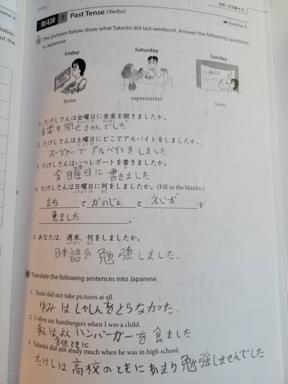 第4課 3 Past Tense (Verbs)
The pictures below show what Takeshi did last weekend. Answer the following questions in Japanese.
Friday Saturday Sunday
home supermarket town
1. たけしさんは金曜日に音楽を聞きましたか。
音楽を聞きませんでした
2. たけしさんは土曜日にどこでアルバイトをしましたか。
スーパーでアルバイトをしました
3. たけしさんはいつレポートを書きましたか。
金曜日に書きました
4. たけしさんは日曜日に何をしましたか。(Fill in the blanks.)
まち で かのじょ と えいが を
見ました。
5. あなたは、週末、何をしましたか。
日本語を勉強しました.
Translate the following sentences into Japanese.
1. Yumi did not take pictures at all.
ゆみはしゃしんをとらなかった.
2. I often ate hamburgers when I was a child.
私はよくハンバーガーを食ました.
子供ともに
3. Takeshi did not study much when he was in high school.
たけしは高校のときにあまり勉強しませんでした